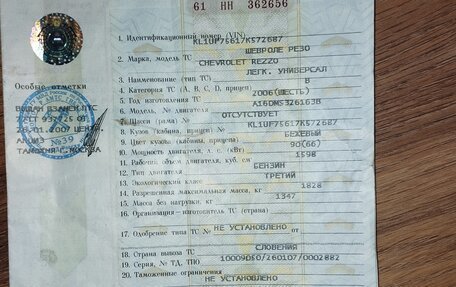 61 НН 362656
1. Идентификационный номер (VIN) KL1UF75617K572687
2. Марка, модель ТС ШЕВРОЛЕ РЕЗО
CHEVROLET REZZO
3. Наименование (тип ТС) ЛЕГК. УНИВЕРСАЛ
4. Категория ТС (А, В, С, D, прицеп) B
5. Год изготовления ТС 2006(ШЕСТЬ)
6. Модель, № двигателя A16DMS326163B
7. Шасси (рама) № ОТСУТСТВУЕТ
8. Кузов (кабина, прицеп) № KL1UF75617K572687
9. Цвет кузова (кабины, прицепа) БЕЖЕВЫЙ
10. Мощность двигателя, л. с. (кВт) 90(66)
11. Рабочий объем двигателя, куб. см 1598
12. Тип двигателя БЕНЗИН
13. Экологический класс ТРЕТИЙ
14. Разрешенная максимальная масса, кг 1828
15. Масса без нагрузки, кг 1347
16. Организация - изготовитель ТС (страна)
17. Одобрение типа ТС № НЕ УСТАНОВЛЕНО от
18. Страна вывоза ТС СЛОВЕНИЯ
19. Серия, № ТД, ТПО 10009050/260107/0002882
20. Таможенные ограничения
НЕ УСТАНОВЛЕНО
Особые отметки
ВЫДАН ВЗАМЕН ПТС
77ТТ 937725 ОТ
29.01.2007 ЦЕНТ.
АКЦИЗ.
ТАМОЖНЯ Г.МОСКВА